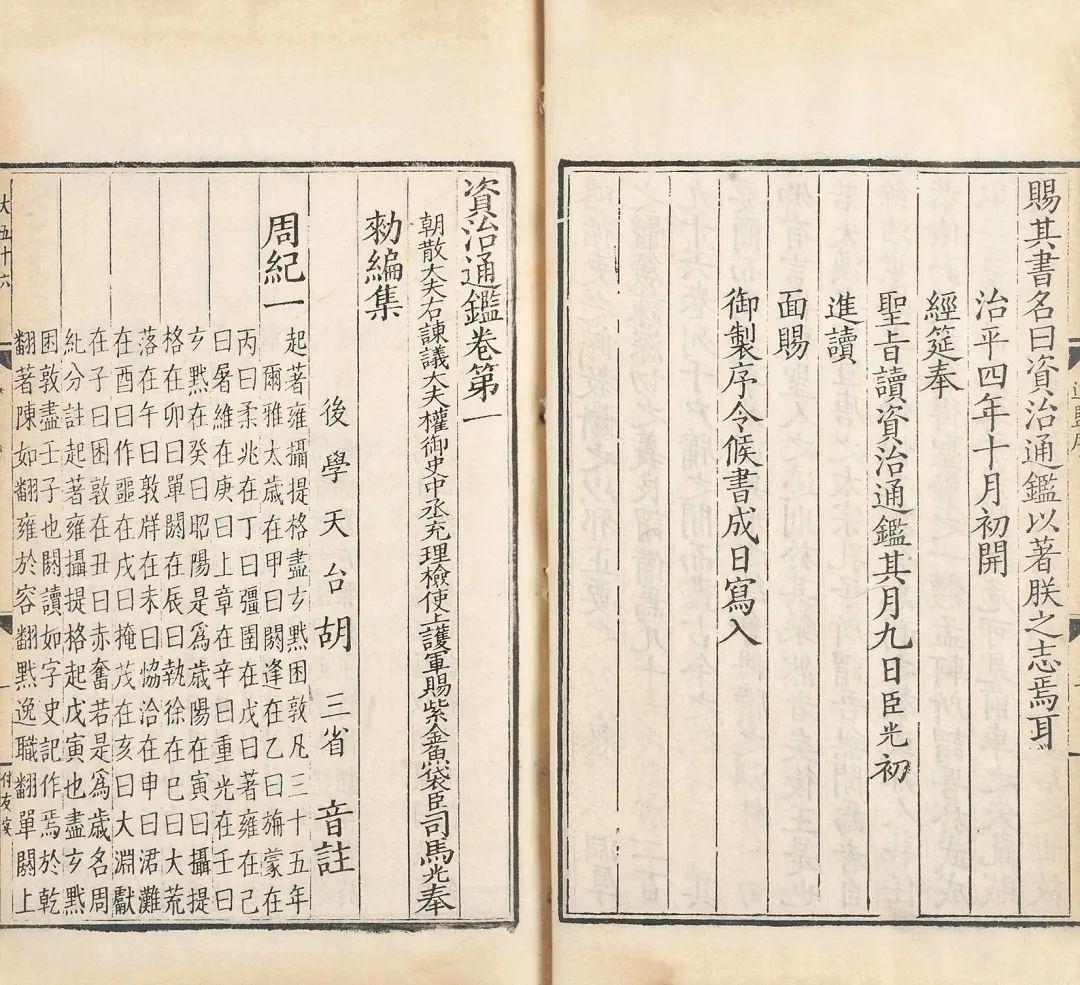 賜其書名曰資治通鑑以著朕之志焉耳
治平四年十月初開
經筵奉
聖旨讀資治通鑑其月九日臣光初
進讀
面賜
御製序令候書成日寫入
資治通鑑卷第一
朝散大夫右諫議大夫權御史中丞充理檢使上護軍賜紫金魚袋臣司馬光奉
勑編集
後學天台胡三省音註
周紀一
起著雍攝提格盡玄黓困敦凡三十五年
爾雅太歲在甲曰閼逢在乙曰旃蒙在
丙曰柔兆在丁曰彊圉在戊曰著雍在己
曰屠維在庚曰上章在辛曰重光在壬曰
玄黓在癸曰昭陽是爲歲陽在寅曰攝提
格在卯曰單閼在辰曰執徐在巳曰大荒
落在午曰敦牂在未曰協洽在申曰涒灘
在酉曰作噩在戌曰掩茂在亥曰大淵獻
在子曰困敦在丑曰赤奮若是爲歲名周
紀分註起著雍攝提格起戊寅也盡玄黓
困敦盡壬子也閼讀如字史記作焉於乾
翻著陳如翻雍於容翻黓逸職翻單閼上
大五十六